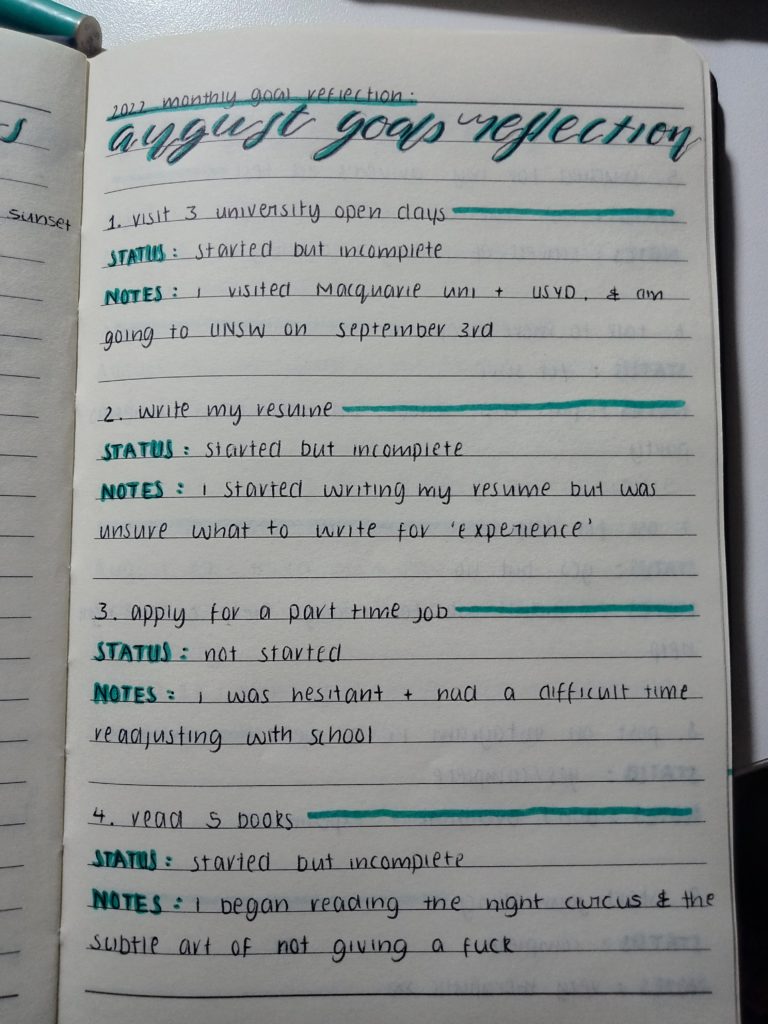 sunset
2022 monthly goal reflection:
august goals reflection
1. visit 3 university open days
STATUS: started but incomplete
NOTES: i visited Macquarie uni + USYD, & am
going to UNSW on september 3rd
2. write my resume
STATUS: started but incomplete
NOTES: i started writing my resume but was
unsure what to write for 'experience'
3. apply for a part time job
STATUS: not started
NOTES: i was hesitant + had a difficult time
readjusting with school
4. read 5 books
STATUS: started but incomplete
NOTES: i began reading the night circus & the
subtle art of not giving a fuck